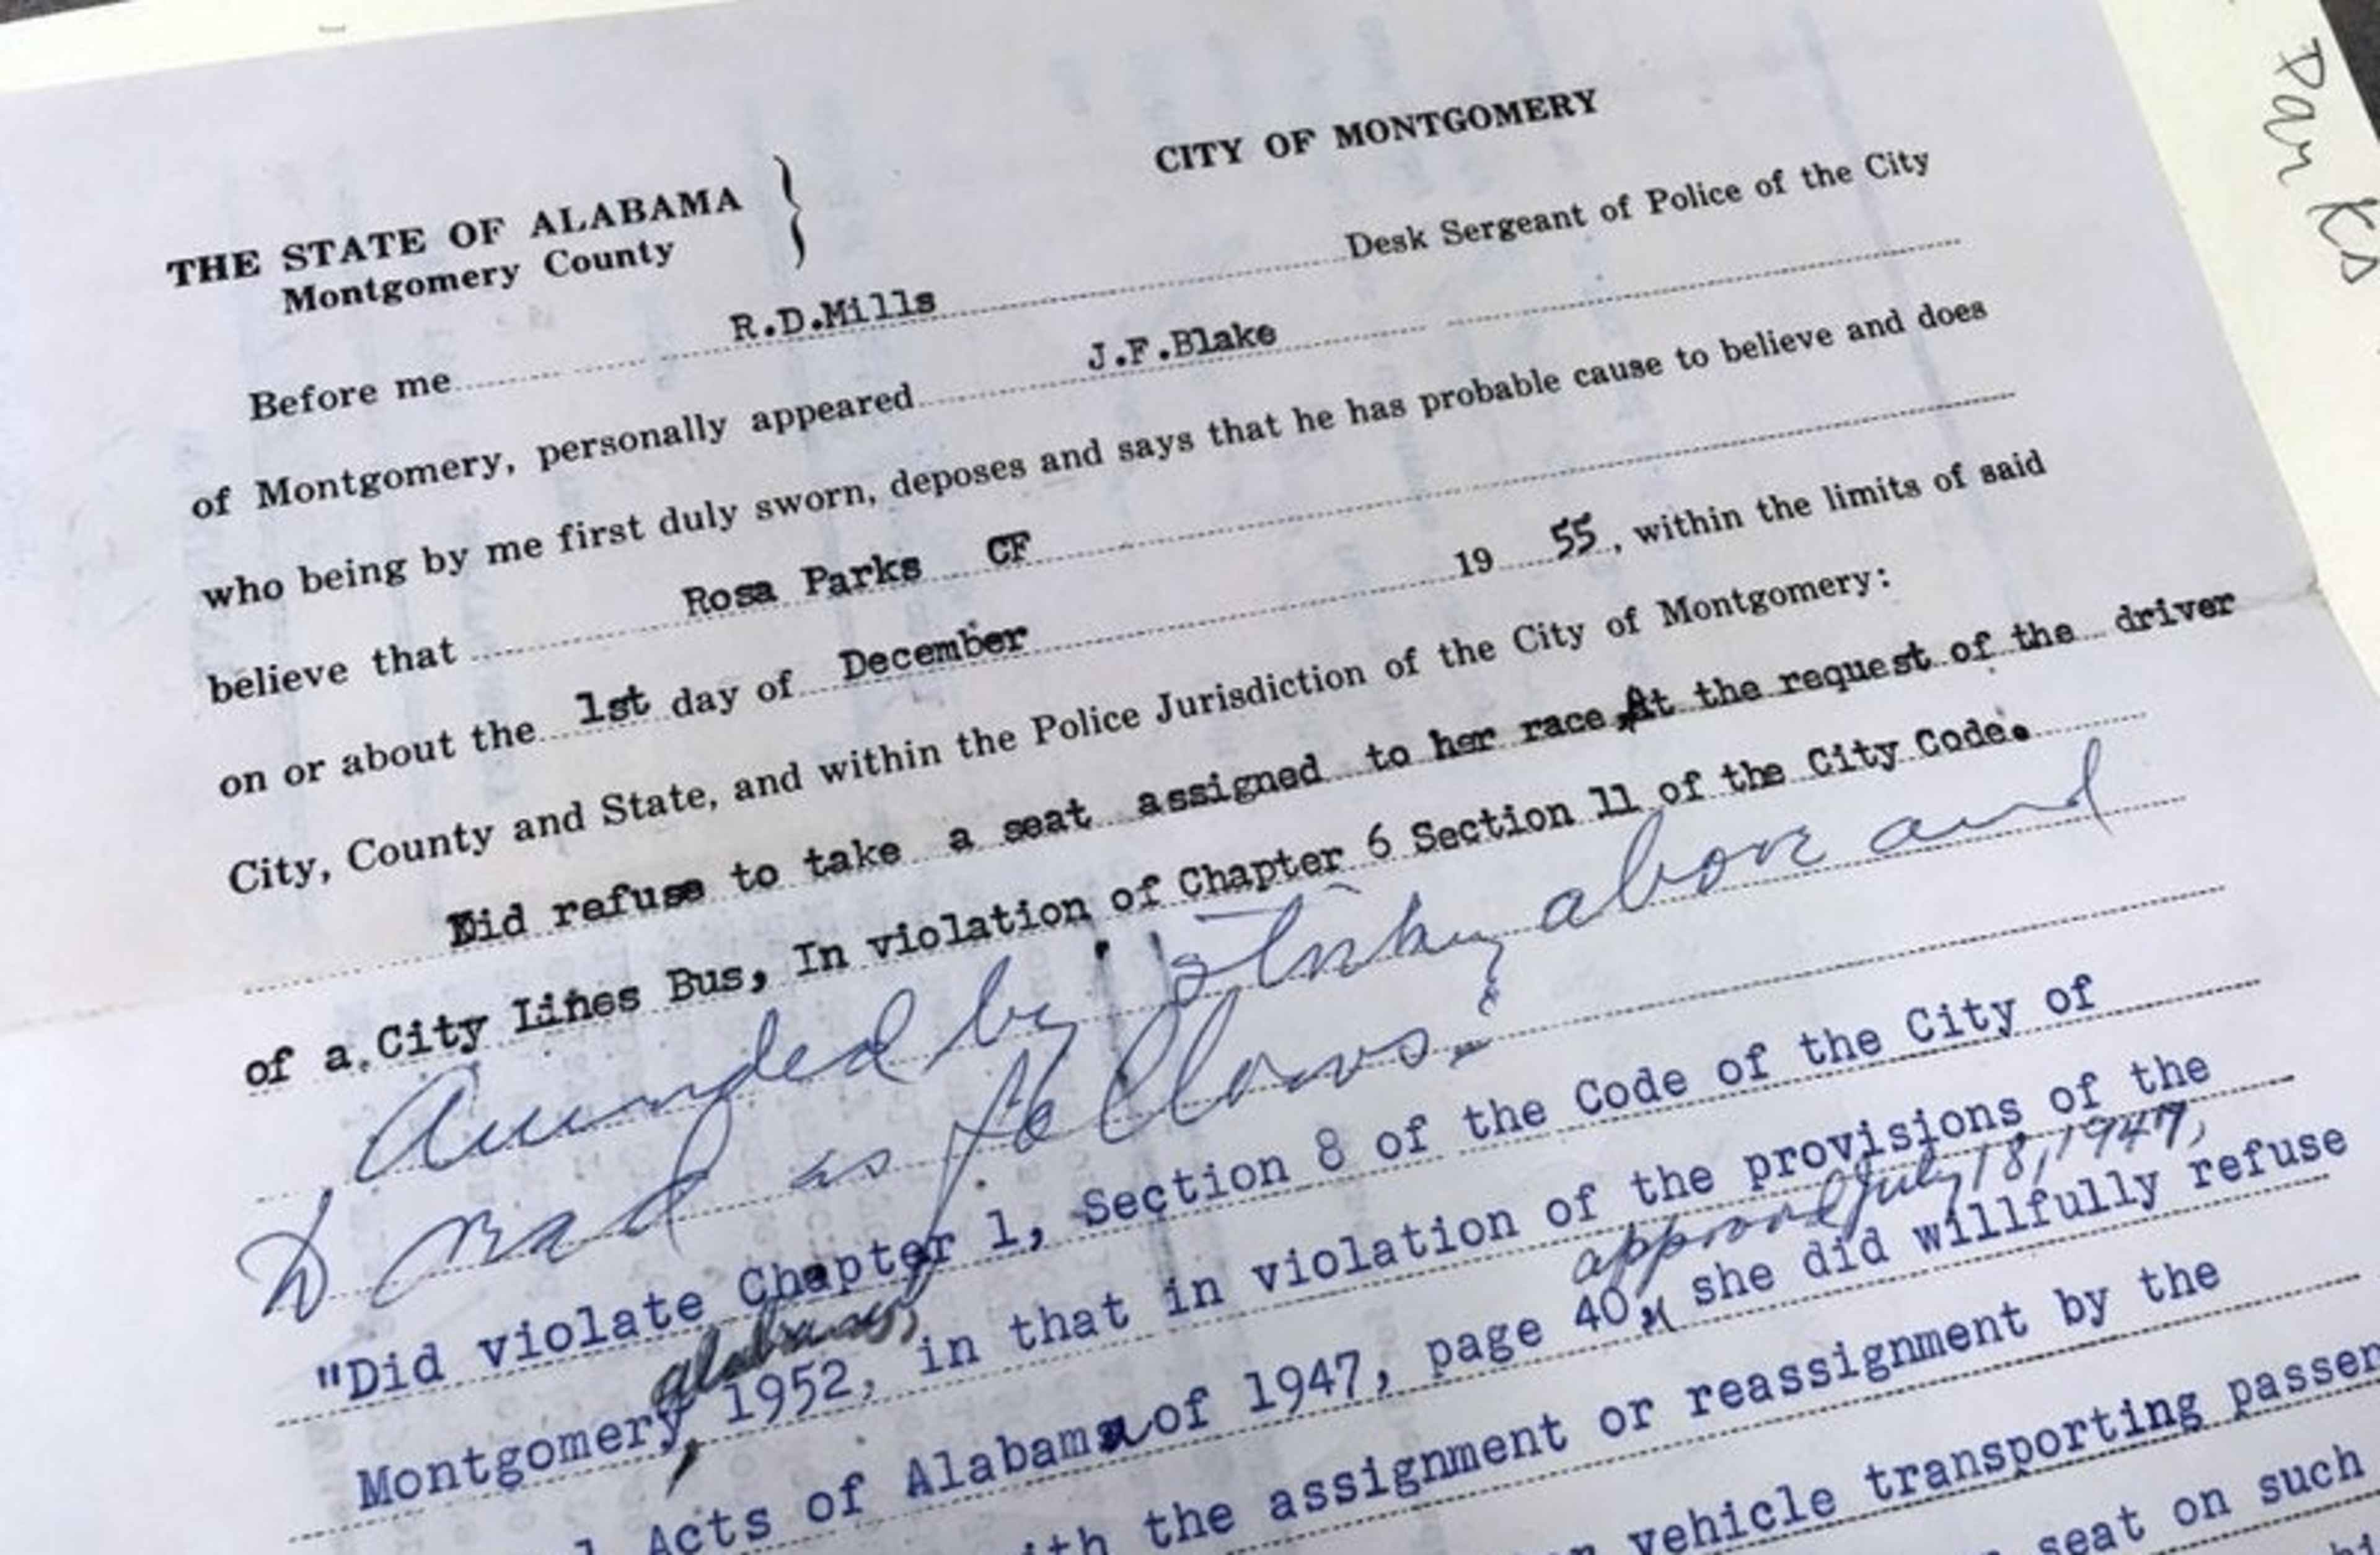 CITY OF MONTGOMERY
THE STATE OF ALABAMA }
Montgomery County
Before me R.D.Mills Desk Sergeant of Police of the City
of Montgomery, personally appeared J.F.Blake
who being by me first duly sworn, deposes and says that he has probable cause to believe and does
believe that Rosa Parks CF
on or about the 1st day of December 19 55, within the limits of said
City, County and State, and within the Police Jurisdiction of the City of Montgomery:
Did refuse to take a seat assigned to her race,At the request of the driver
of a City Lines Bus, In violation of Chapter 6 Section 11 of the City Code.
Amended by striking above and
to read as follows:
"Did violate Chapter 1, Section 8 of the Code of the City of
Montgomery, Alabama, 1952, in that in violation of the provisions of the
approved July 18, 1947,
Acts of Alabama of 1947, page 40, she did willfully refuse
the assignment or reassignment by the
vehicle transporting passen
seat on such
Parks